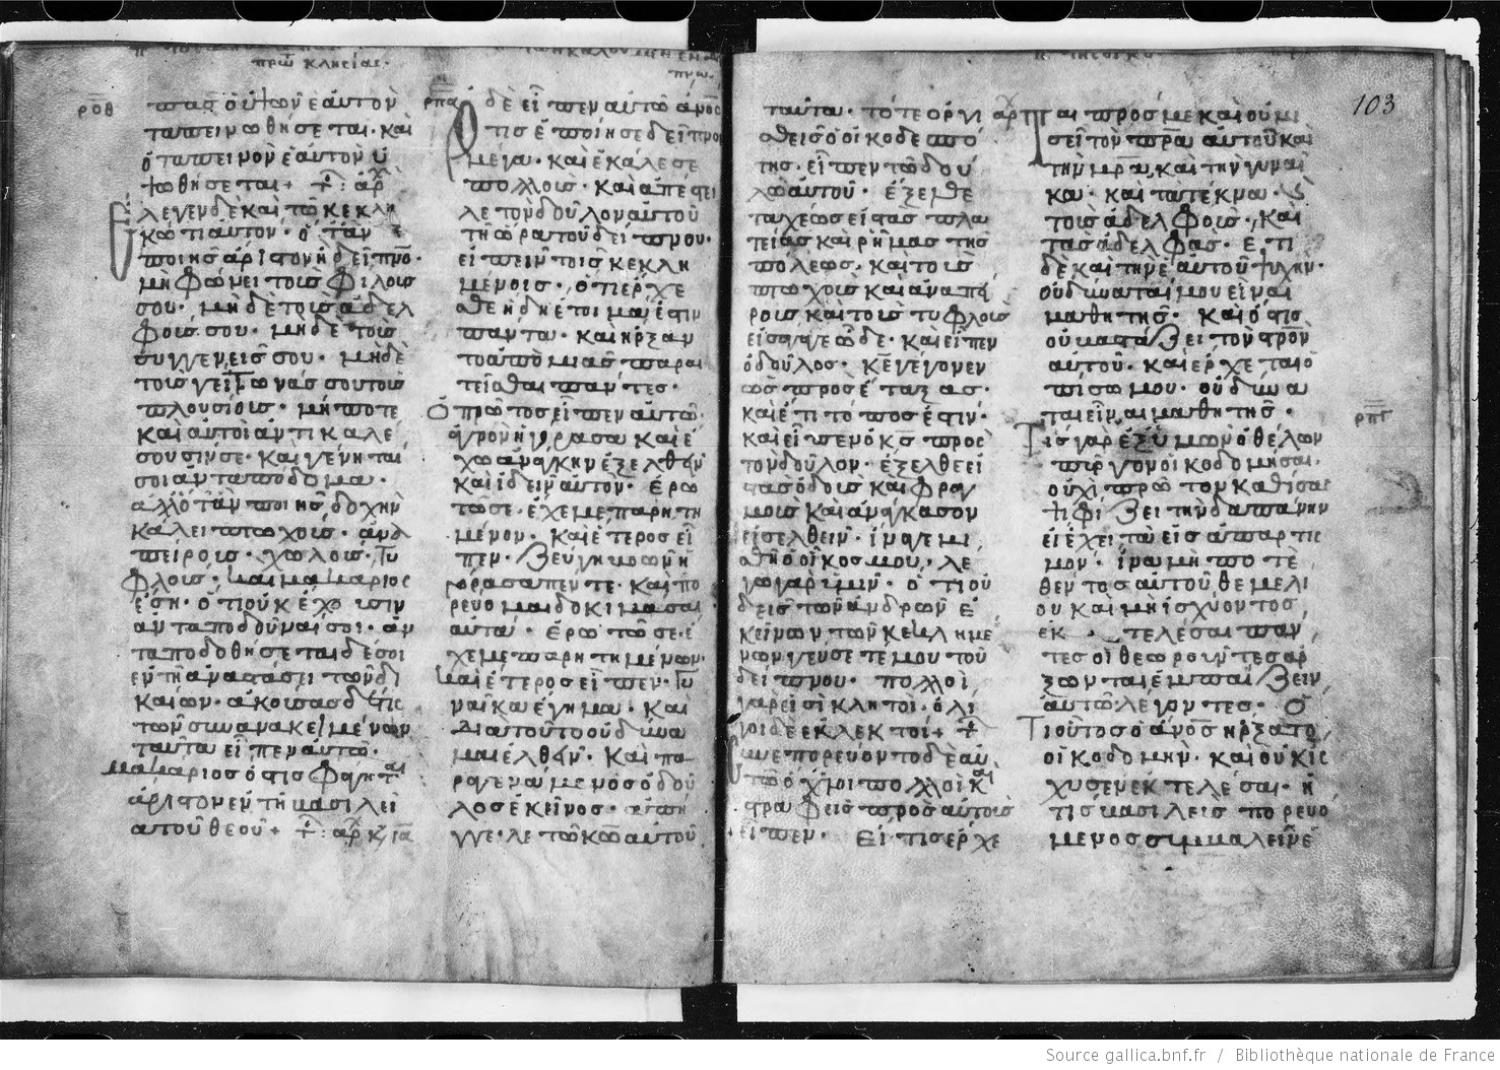 πρω κλησίας.
ροθ
πᾶς ὁ ὑψῶν ἑαυτὸν
ταπεινωθήσεται· καὶ
ὁ ταπεινῶν ἑαυτὸν ὑ
ψωθήσεται +
ἔλεγεν δὲ καὶ τῶ κεκλη
κότι αὐτόν· ὅταν
ποιῆς ἄριστον ἢ δεῖπνο·
μὴ φώνει τοὺς φίλους
σου· μηδὲ τοὺς ἀδελ
φούς σου· μηδὲ τοὺς
συγγενεῖς σου· μηδὲ
τοὺς γείτωνάς σου τοὺς
πλουσίους· μήποτε
καὶ αὐτοὶ ἀντικαλέ
σουσίν σε· καὶ γένηται
σοι ἀνταπόδομα·
ἀλλ' ὅταν ποιῆς δοχὴν
κάλει πτωχούς· ἀνα
πείρους· χωλούς· τυ
φλούς· καὶ μακάριος
ἔση· ὅτι οὐκ ἔχουσιν
ἀνταποδοῦναί σοι· ἀν
ταποδοθήσεται δέ σοι
ἐν τῆ ἀναστάσει τῶν δι
καίων· ἀκούσας δέ τις
τῶν συνανακειμένων
ταῦτα εἶπεν αὐτῶ·
μακάριος ὅστις φάγεται
ἄριστον ἐν τῆ βασιλεί
α τοῦ θεοῦ +
ρπα
ὁ δὲ εἶπεν αὐτῶ ἄνος
τις ἐποίησε δεῖπνο
μέγα· καὶ ἐκάλεσε
πολλούς· καὶ ἀπέστει
λε τὸν δοῦλον αὐτοῦ
τῆ ὥρα τοῦ δείπνου·
εἰπεῖν τοῖς κεκλη
μένοις· ὅτι ἔρχε
σθε ἤδη ἕτοιμά ἐστιν
πάντα· καὶ ἤρξαν
το ἀπὸ μιᾶς παραι
τεῖσθαι πάντες·
ὁ πρῶτος εἶπεν αὐτῶ·
ἀγρὸν ἠγόρασα καὶ ἔ
χω ἀνάγκην ἐξελθεῖν
καὶ ἰδεῖν αὐτόν· ἐρω
τῶ σε· ἔχε με παρητη
μένον· καὶ ἕτερος εἶ
πεν· ζεύγη βοῶν ἠ
γόρασα πέντε· καὶ πο
ρεύομαι δοκιμάσαι
αὐτά· ἐρωτῶ σε ἔ
χε με παρητημένον·
καὶ ἕτερος εἶπεν· γυ
ναῖκα ἔγημα· καὶ
διὰ τοῦτο οὐ δύνα
μαι ἐλθεῖν· καὶ πα
ραγενάμενος ὁ δοῦ
λος ἐκεῖνος· ἀπήγ
γειλε τῶ κῶ αὐτοῦ
ταῦτα· τότε ὀργι
σθεὶς ὁ οἰκοδεσπό
της· εἶπεν τῶ δού
λω αὐτοῦ· ἔξελθε
ταχέως εἰς τὰς πλα
τείας καὶ ῥήμας τῆς
πόλεως· καὶ τοὺς
πτωχοὺς καὶ ἀναπή
ρους καὶ τοὺς τυφλοὺς
εἰσάγαγε ὧδε· καὶ εἶπεν
ὁ δοῦλος· κε γέγονεν
ὡς προσέταξας·
καὶ ἔτι τόπος ἐστίν·
καὶ εἶπεν ὁ κς πρὸς
τὸν δοῦλον· ἔξελθε εἰ
ς τὰς ὁδοὺς καὶ φραγ
μοὺς καὶ ἀνάγκασον
εἰσελθεῖν· ἵνα γεμι
σθῆ ὁ οἶκός μου· λέ
γω γὰρ ὑμῖν· ὅτι οὐ
δεὶς τῶν ἀνδρῶν ἐ
κείνων τῶν κεκλημέ
νων γεύσεταί μου τοῦ
δείπνου· πολλοὶ
γάρ εἰσι κλητοί· ὀλί
γοι δὲ ἐκλεκτοί +
συνεπορεύοντο δὲ αὐ
τῶ ὄχλοι πολλοὶ καὶ
στραφεὶς πρὸς αὐτοὺς
εἶπεν· Εἴ τις ἔρχε
103
ται πρός με καὶ οὐ μι
σεῖ τὸν πρα αὐτοῦ καὶ
τὴν μρα καὶ τὴν γυναῖ
κα· καὶ τὰ τέκνα·
τοὺς ἀδελφούς· καὶ
τὰς ἀδελφάς· ἔτι
δὲ καὶ τὴν ἑαυτοῦ ψυχήν·
οὐ δύναταί μου εἶναι
μαθητής· καὶ ὅστις
οὐ βαστάζει τὸν στρον
αὐτοῦ· καὶ ἔρχεται ὀ
πίσω μου· οὐ δύνα
ται εἶναι μαθητής·
ρπγ
Τίς γὰρ ἐξ ὑμῶν ὁ θέλων
πύργον οἰκοδομῆσαι·
οὐχὶ πρῶτον καθίσας
ψηφίζει τὴν δαπάνην
εἰ ἔχει τὰ εἰς ἀπαρτισ
μόν· ἵνα μήποτε
θέντος αὐτοῦ θεμέλι
ον καὶ μὴ ἰσχύοντος
ἐκτελέσαι πάν
τες οἱ θεωροῦντες ἄρ
ξωνται ἐμπαίζειν
αὐτῶ λέγοντες· ὅ
τι οὗτος ὁ ἄνος ἤρξατο
οἰκοδομῆν· καὶ οὐκ ἴσ
χυσεν ἐκτελέσαι· ἢ
τίς βασιλεὺς πορευό
μενος συμβαλεῖν ἑ